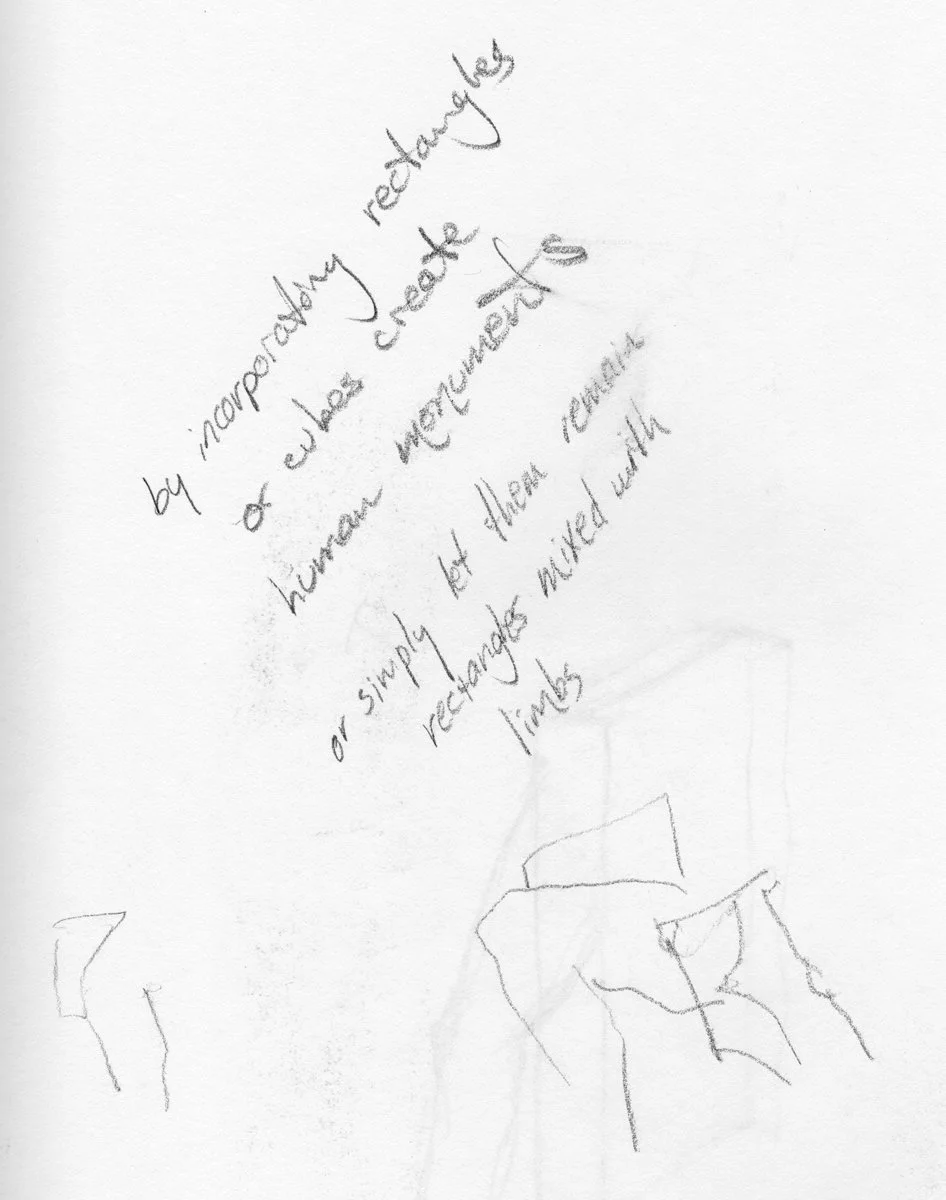 by incorporating rectangles
or cubes create
human monuments
or simply let them remain
rectangles mixed with
limbs